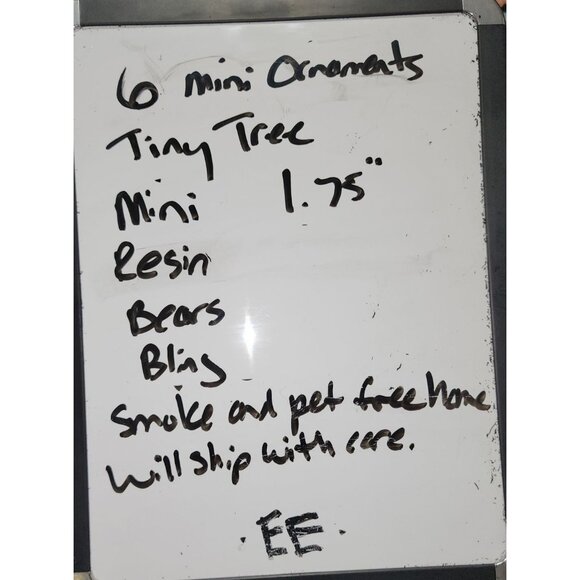 6 Mini Ornaments
Tiny Tree
Mini 1.75"
Resin
Bears
Bling
Smoke and pet free home
Will ship with care.
. EE .